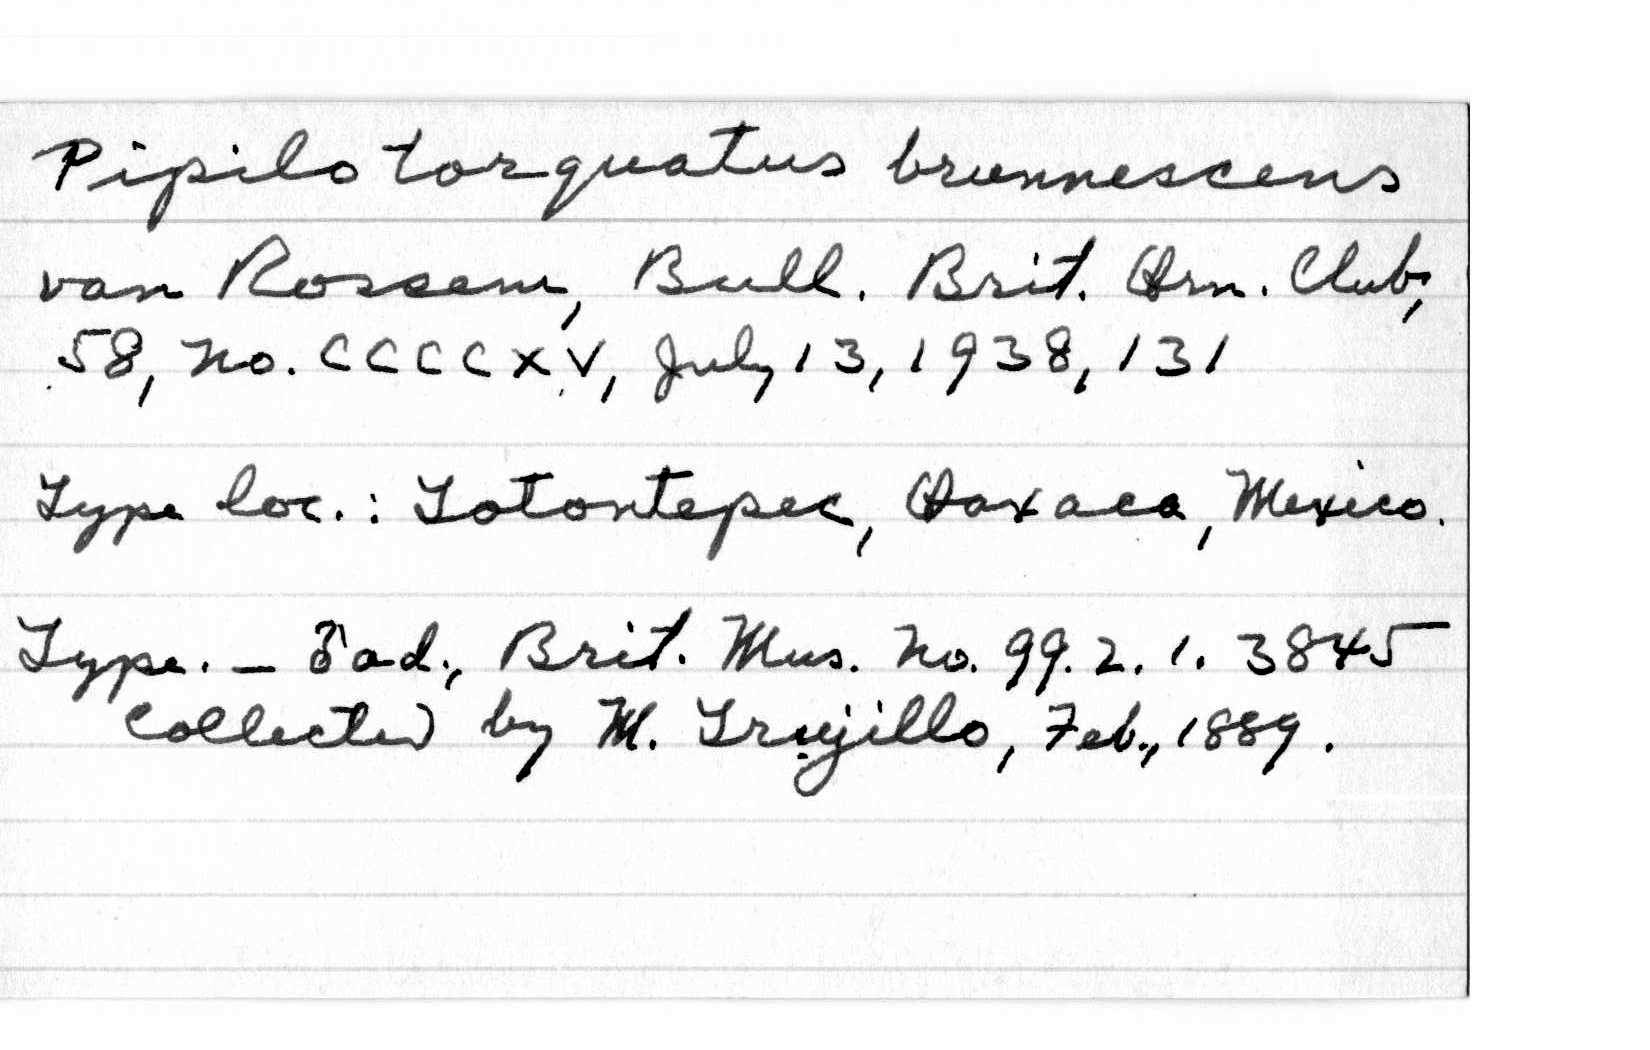 Pipilo torquatus brunnescens
van Rossem, Bull. Brit. Orn. Club,
58, no. CCCCXV, July 13, 1938, 131
Type loc.: Totontepec, Oaxaca, Mexico.
Type. — ♂ ad., Brit. Mus. no. 99.2.1.3845
collected by M. Trujillo, Feb., 1889.